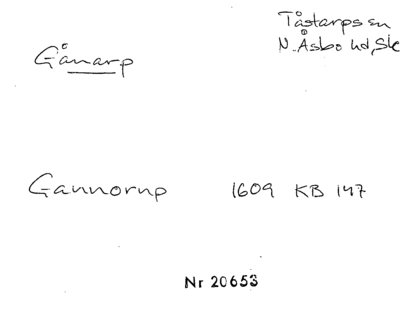 Gånarp
Tåstarps sn
N. Åsbo hd, Sk
Gannorup 1609 KB 147
Nr 20653